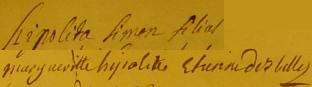 hipolita simon filias
margueritte hypolitte Etienne des billes